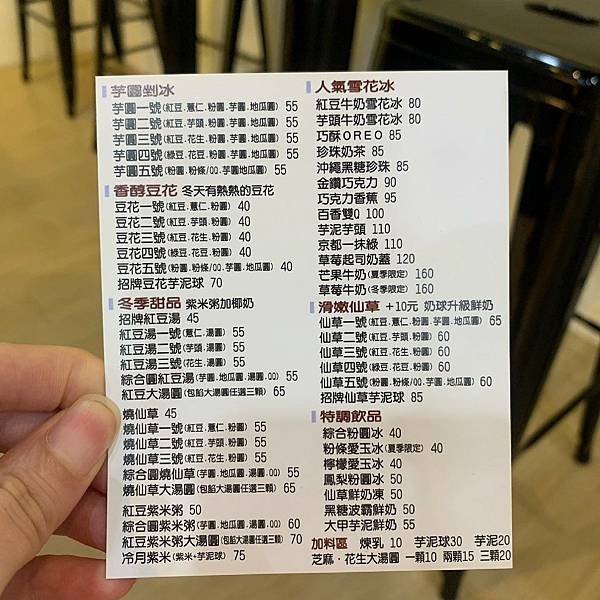 芋圓剉冰
芋圓一號(紅豆.薏仁.粉圓.芋圓.地瓜圓) 55
芋圓二號(紅豆.芋頭.粉圓.芋圓.地瓜圓) 55
芋圓三號(紅豆.花生.粉圓.芋圓.地瓜圓) 55
芋圓四號(綠豆.花豆.粉圓.芋圓.地瓜圓) 55
芋圓五號(粉圓.粉條/QQ.芋圓地瓜圓) 55
香醇豆花 冬天有熱熱的豆花
豆花一號(紅豆.薏仁.粉圓) 40
豆花二號(紅豆.芋頭.粉圓) 40
豆花三號(紅豆.花生.粉圓) 40
豆花四號(綠豆.花豆.粉圓) 40
豆花五號(粉圓.粉條/QQ.芋圓.地瓜圓) 40
招牌豆花芋泥球 70
冬季甜品 紫米粥加椰奶
招牌紅豆湯 45
紅豆湯一號(薏仁.湯圓) 55
紅豆湯二號(芋頭.湯圓) 55
紅豆湯三號(花生.湯圓) 55
綜合圓紅豆湯(芋圓.地瓜圓.湯圓.QQ) 55
紅豆大湯圓(包餡大湯圓任選三顆) 65
燒仙草 45
燒仙草一號(紅豆.薏仁.粉圓) 55
燒仙草二號(紅豆.芋頭.粉圓) 55
燒仙草三號(紅豆.花生.粉圓) 55
綜合圓燒仙草(芋圓.地瓜圓.湯圓.QQ) 55
燒仙草大湯圓(包餡大湯圓任選三顆) 65
紅豆紫米粥 50
綜合圓紫米粥(芋圓.地瓜圓.湯圓.QQ) 60
紅豆紫米粥大湯圓(包餡大湯圓任選三顆) 70
冷月紫米(紫米+芋泥球) 75
人氣雪花冰
紅豆牛奶雪花冰 80
芋頭牛奶雪花冰 80
巧酥OREO 85
珍珠奶茶 85
沖繩黑糖珍珠 85
金鑽巧克力 90
巧克力香蕉 95
百香雙Q 100
芋泥芋頭 110
京都一抹綠 110
草莓起司奶蓋 120
芒果牛奶(夏季限定) 160
草莓牛奶(冬季限定) 160
滑嫩仙草 +10元 奶球升級鮮奶
仙草一號(紅豆.薏仁.粉圓.芋圓.地瓜圓) 65
仙草二號(紅豆.芋頭.粉圓) 60
仙草三號(紅豆.花生.粉圓) 60
仙草四號(綠豆.花豆.粉圓) 60
仙草五號(粉圓.粉條/QQ.芋圓.地瓜圓) 60
招牌仙草芋泥球 85
特調飲品
綜合粉圓冰 40
粉條愛玉冰(夏季限定) 40
檸檬愛玉冰 40
鳳梨粉圓冰 50
仙草鮮奶凍 50
黑糖波霸鮮奶 50
大甲芋泥鮮奶 55
加料區 煉乳 10 芋泥球30 芋泥20
芝麻.花生大湯圓 一顆10 兩顆15 三顆20